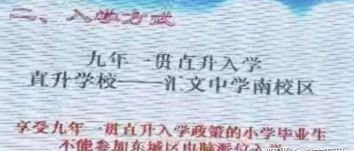 二、入学方式
九年一贯直升入学
直升学校——汇文中学南校区
享受九年一贯直升入学政策的小学毕业生
不能参加东城区电脑派位入学